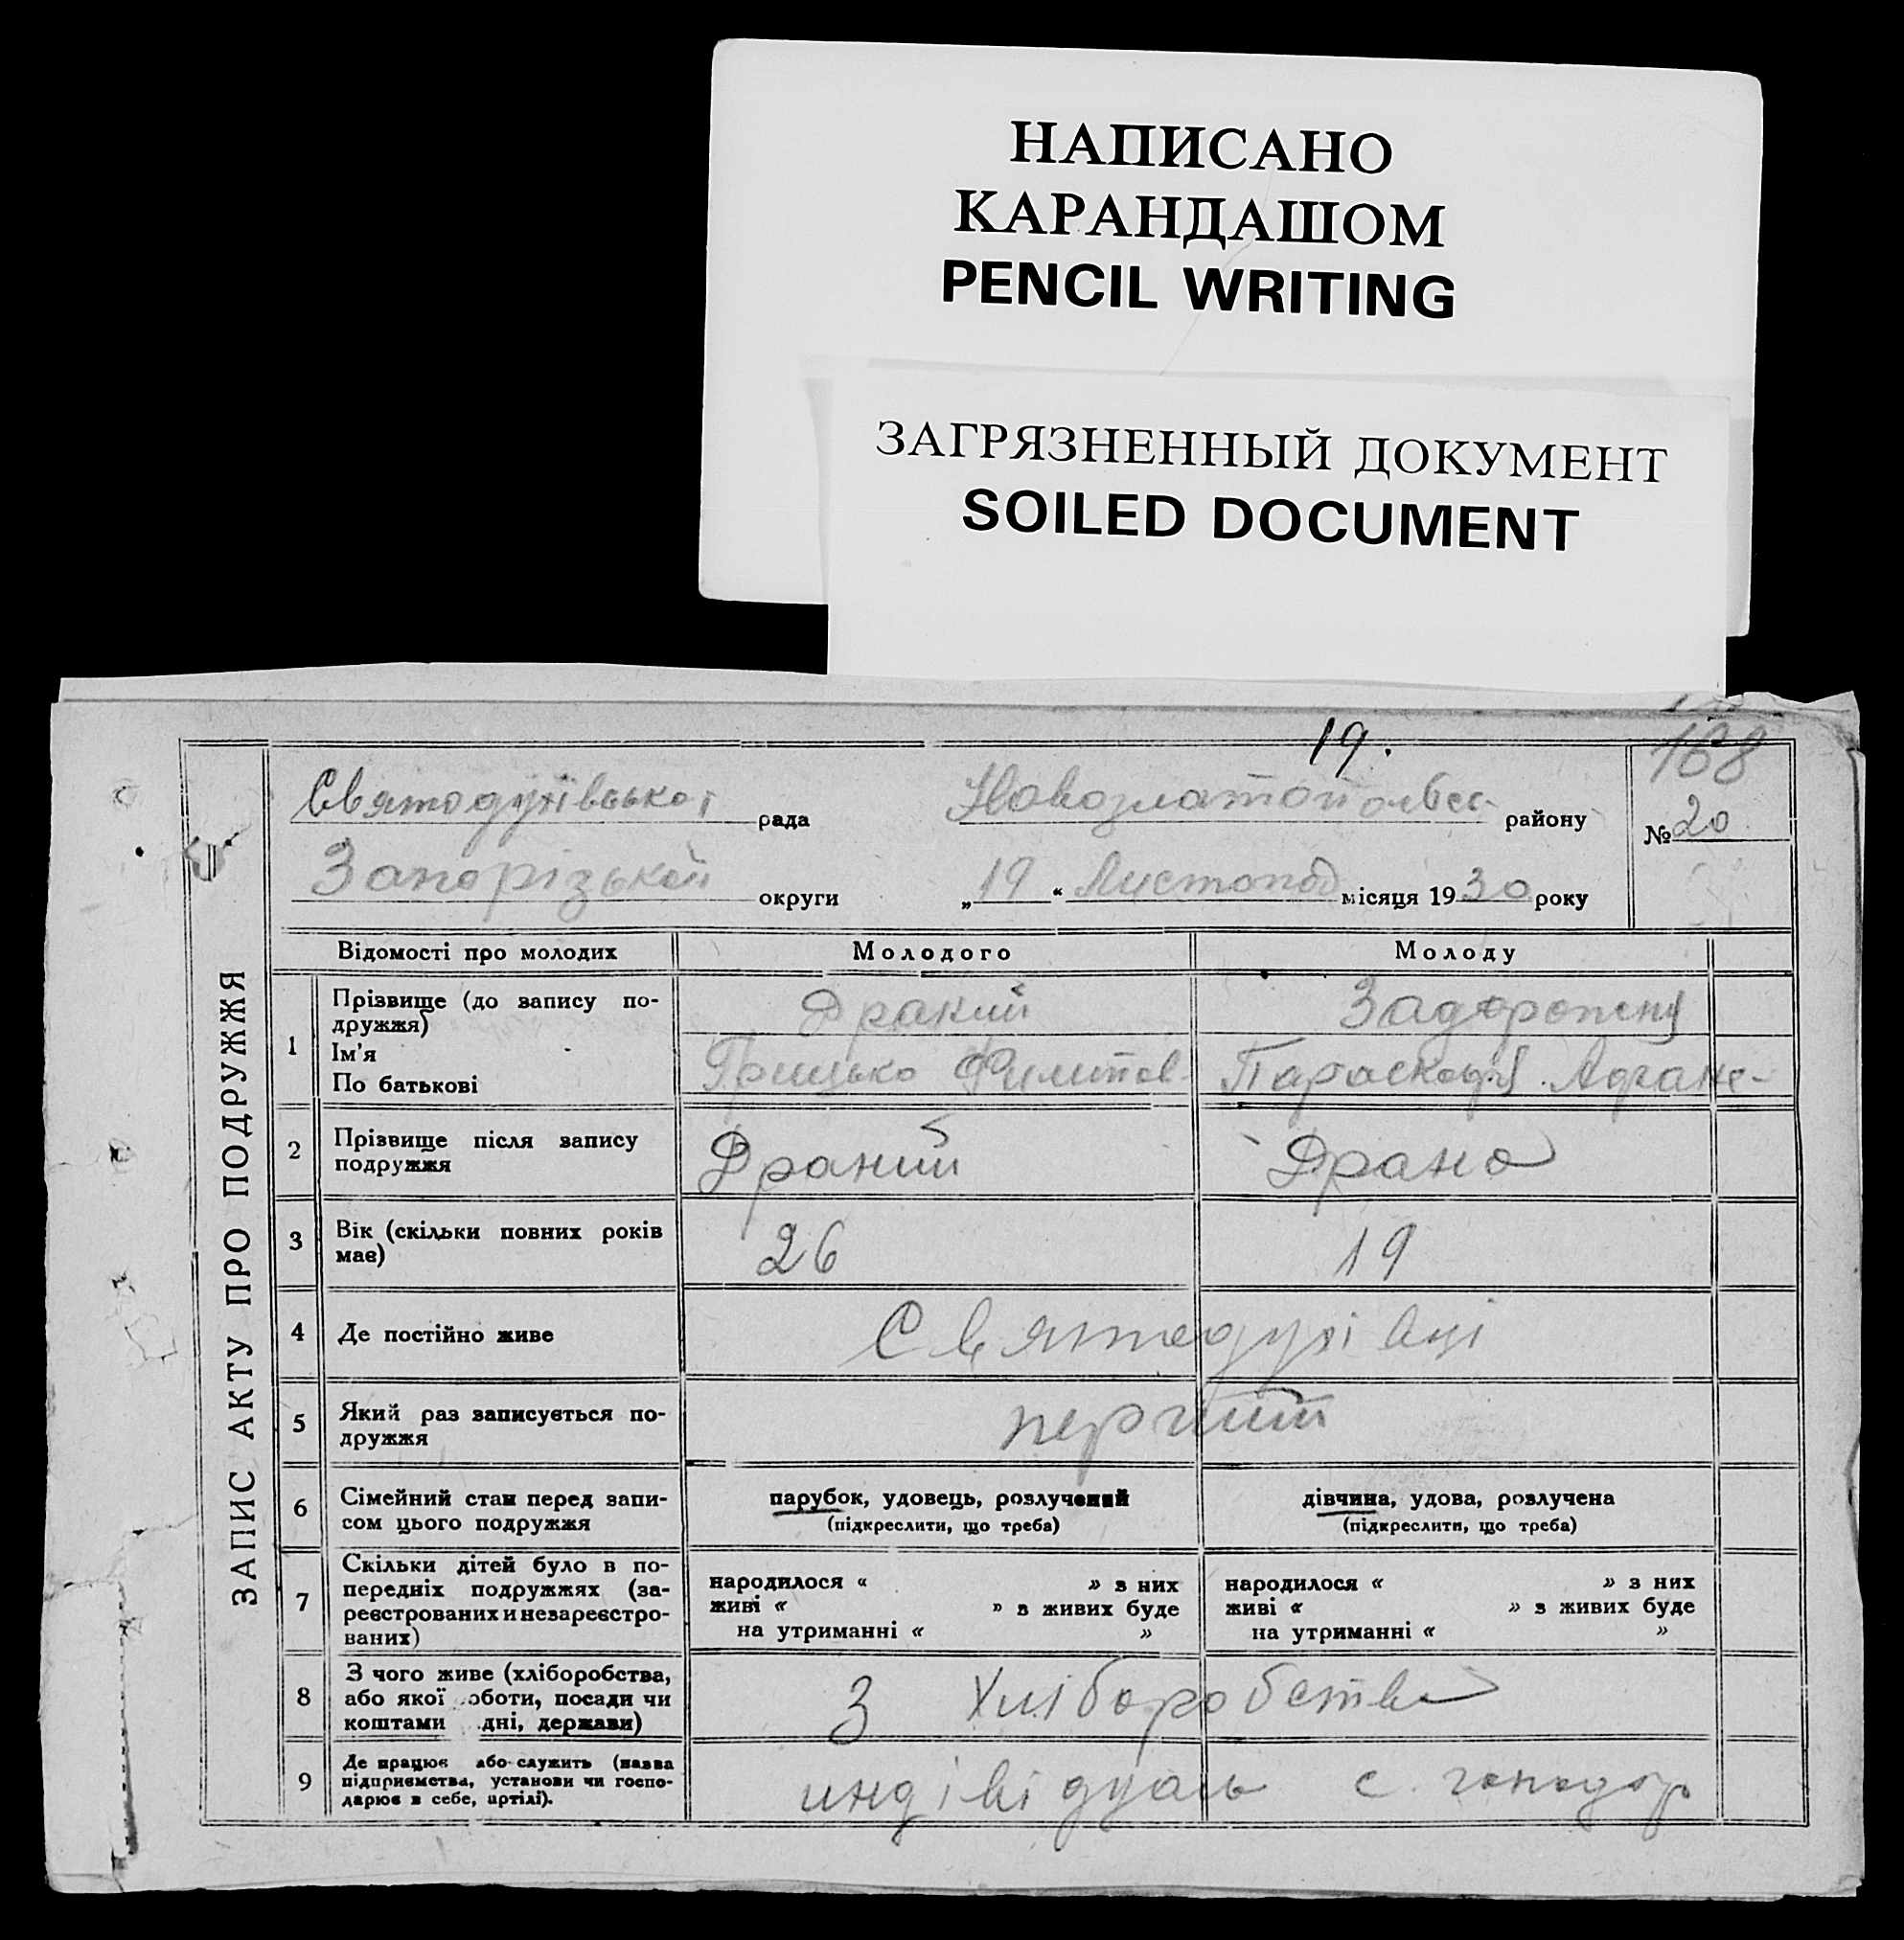 НАПИСАНО
КАРАНДАШОМ
PENCIL WRITING
ЗАГРЯЗНЕННЫЙ ДОКУМЕНТ
SOILED DOCUMENT
19.
168
Святодухівської рада Новозлатопольськ- району № 20
Запорізької округи „19“ Листопад місяця 1930 року
ЗАПИС АКТУ ПРО ПОДРУЖЖЯ
Відомості про молодих Молодого Молоду
1 Прізвище (до запису по-
дружжя) Драний Задорожня
Ім'я
По батькові Грицько Филипов- Парасковія
2 Прізвище після запису
подружжя Драний Драна
3 Вік (скільки повних років
має) 26 19
4 Де постійно живе Святодухівці
5 Який раз записується по-
дружжя перший
6 Сімейний стан перед запи-
сом цього подружжя
парубок, удовець, розлучений дівчина, удова, розлучена
(підкреслити, що треба) (підкреслити, що треба)
7 Скільки дітей було в по-
передніх подружжях (за-
реєстрованих и незареєстро-
ваних)
народилося « » з них народилося « » з них
живі « » з живих буде живі « » з живих буде
на утриманні « » на утриманні « »
8 З чого живе (хліборобства,
або якої оботи, посади чи
коштами дні, держави)
З хліборобства
9 Де працює або служить (назва
підприємства, установи чи госпо-
дарює в себе, артілі).
индівідуаль с.